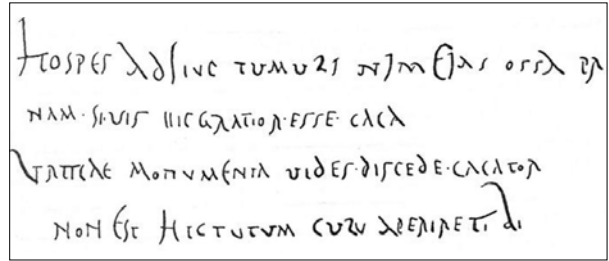 HOSPES ADHVC TVMVLI NI MEIAS OSSA PR
NAM·SI·VIS HVIC GRATIOR·ESSE·CACA
VRTICAE MONVMENTA VIDES·DISCEDE·CACATOR
NON EST HIC TVTVM CVLV APERIRE TIBI